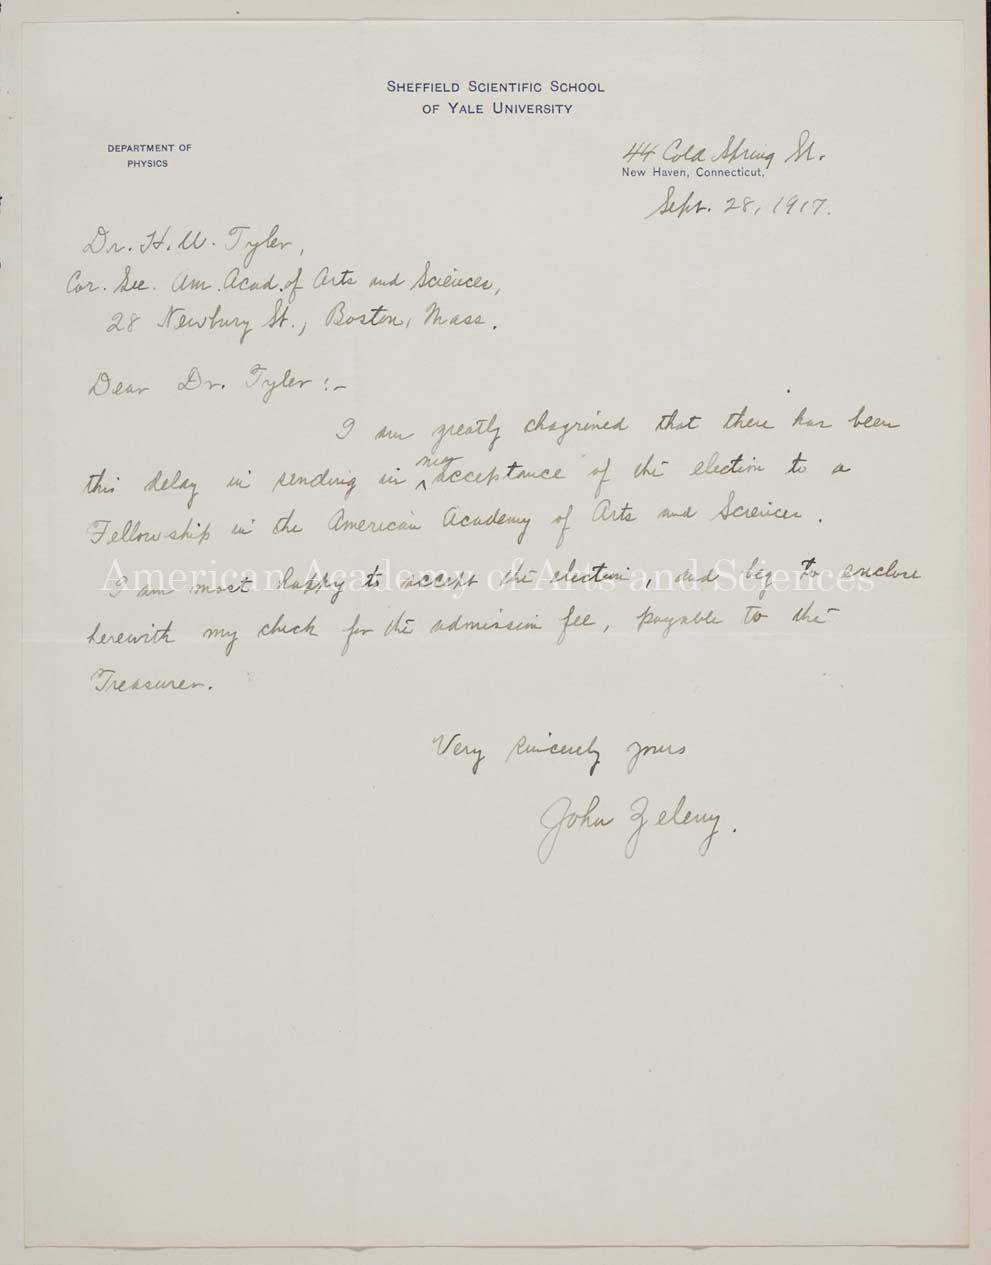 SHEFFIELD SCIENTIFIC SCHOOL
OF YALE UNIVERSITY
DEPARTMENT OF
PHYSICS
44 Cold Spring St.
New Haven, Connecticut,
Sept. 28, 1917.
Dr. H. W. Tyler,
Cor. Sec. Am. Acad. of Arts and Sciences,
28 Newbury St., Boston, Mass.
Dear Dr. Tyler:-
I am greatly chagrined that there has been
this delay in sending in my acceptance of the election to a
Fellowship in the American Academy of Arts and Sciences.
American Academy of Arts and Sciences
I am most happy to accept the election, and beg to enclose
herewith my check for the admission fee, payable to the
Treasurer.
Very sincerely yours
John Zeleny.